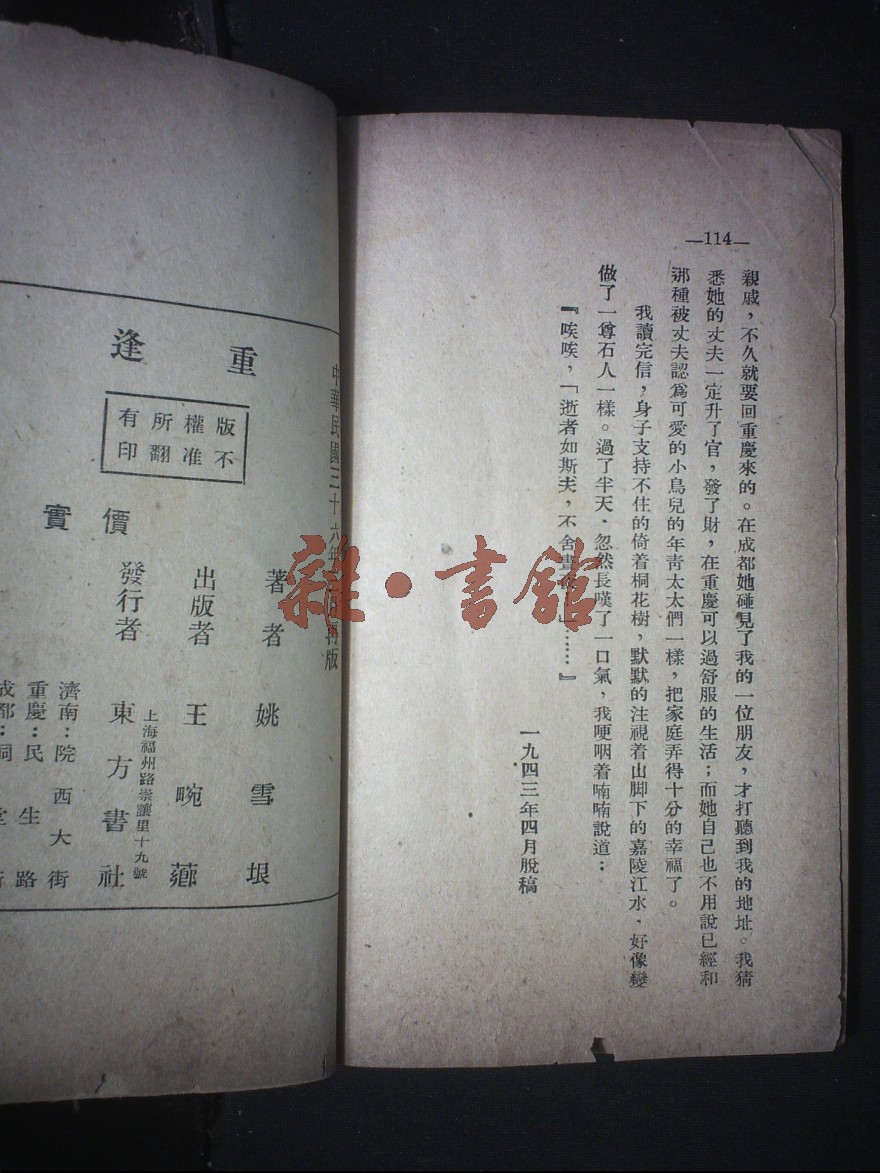 —114—
親戚，不久就要回重慶來的。在成都她碰見了我的一位朋友，才打聽到我的地址。我猜
悉她的丈夫一定升了官，發了財，在重慶可以過舒服的生活；而她自己也不用說已經和
那種被丈夫認爲可愛的小鳥兒的年青太太們一樣，把家庭弄得十分的幸福了。
我讀完信，身子支持不住的倚着桐花樹，默默的注視着山脚下的嘉陵江水，好像變
做了一尊石人一樣。過了半天，忽然長嘆了一口氣，我哽咽着喃喃說道：
『唉唉，「逝者如斯夫，不舍晝……』
一九四三年四月脫稿
中華民國三十六年 再版
重逢
版權所有
不准翻印
實價
著者 姚雪垠
出版者 王畹薌
上海福州路崇讓里十九號
發行者 東方書社
濟南：院西大街
重慶：民生路
成都：祠堂街
雜·書館